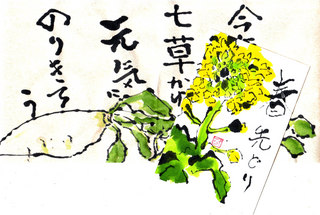 今
七草かけ
元気に
のりきろ
う
春
先どり